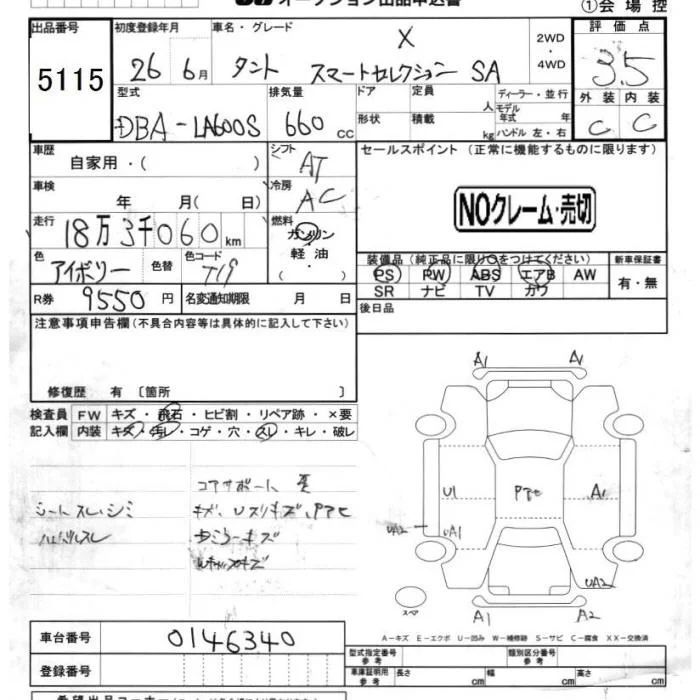 オークション出品申込書
①会場控
出品番号 初度登録年月 車名・グレード 評価点
5115 26 6月 タント X スマートセレクション SA 2WD・4WD 3.5
型式 排気量 ドア 定員 ディーラー・並行 外装 内装
DBA-LA600S 660 cc 形状 積載 人 kg モデル年式 年 ハンドル 左・右 C C
車歴 シフト セールスポイント (正常に機能するものに限ります)
自家用・( ) AT
車検 冷房
年 月( 日) AC
NOクレーム・売切
走行 燃料
18万3千060km ガソリン・軽油・( )
色 色替 色コード 装備品(純正品に限り○をつけてください) 新車保証書
アイボリー T19 PS PW ABS エアB AW 有・無
SR ナビ TV カワ
R券 9550円 名変通知期限 月 日 後日品
注意事項申告欄(不具合内容等は具体的に記入して下さい)
修復歴 有 〔箇所 〕
検査員 FW キズ・飛石・ヒビ割・リペア跡・×要
記入欄 内装 キズ・汚レ・コゲ・穴・スレ・キレ・破レ
コアサポート
シートスレ、シミ
ハンドルスレ
A1 A1
U1 A1
UA2 UA1
UA2
スペア A1 A2
A-キズ E-エクボ U-凹み W-補修跡 S-サビ C-腐食 XX-交換済
車台番号 0146340 型式指定番号 参考 類別区分番号 参考
登録番号 車庫証明用 参考 長さ cm 幅 cm 高さ cm
希望出品コーナー